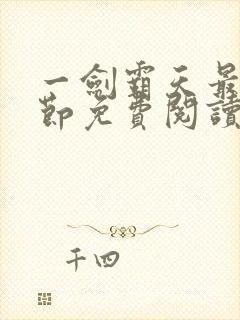 一劍霸天最
節免費閱讀
千四